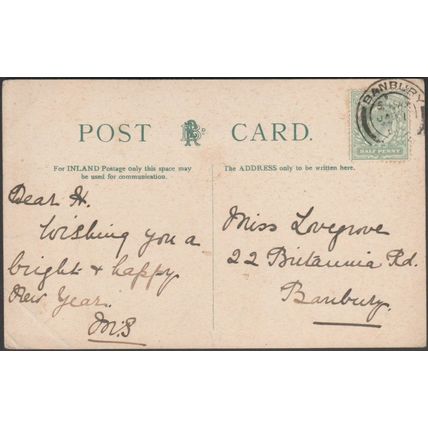 POST CARD.
For INLAND Postage only this space may
be used for communication.
The ADDRESS only to be written here.
BANBURY
HALF PENNY
Dear H.
Wishing you a
bright + happy
New Year.
M.S
Miss Lovegrove
22 Britannia Rd.
Banbury.